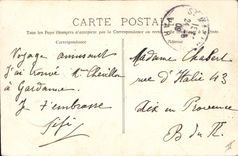 CARTE POSTALE
Tous les Pays étrangers n'acceptent pas la Correspondance au
Correspondance
Voyage amusant
J'ai trouvé Mr Chevillon
à Gardanne.
Je t'embrasse
Fifi
Madame Chabert
rue d'Italie 43
Aix en Provence
B du R